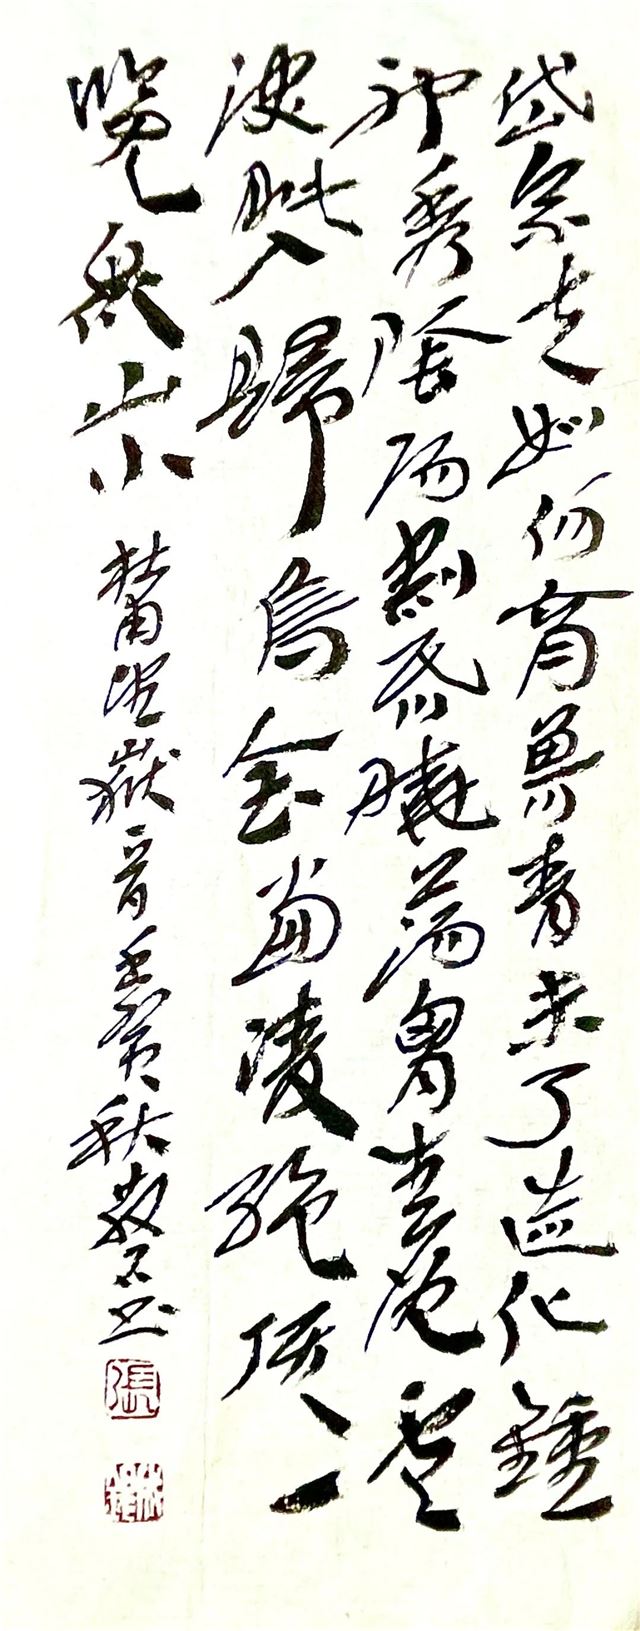 岱宗夫如何齊魯青未了造化鍾
神秀陰陽割昏曉蕩胸生層雲
決眥入歸鳥會當凌絕頂一
覽眾山小 杜甫望嶽一首壬寅秋書
張